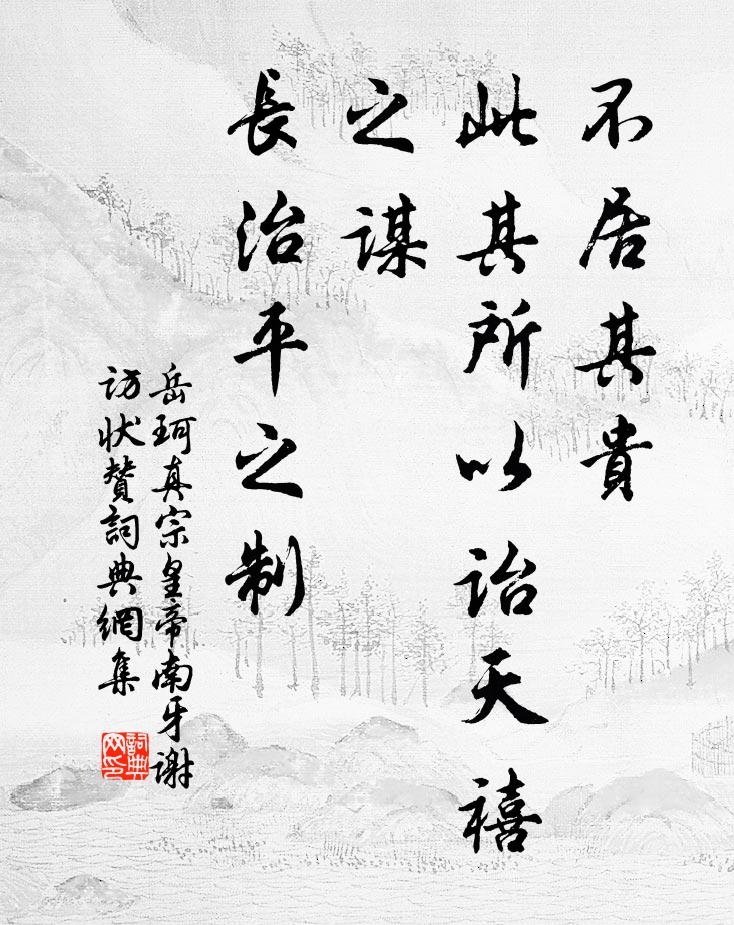 不居其貴
此其所以詒天禧
之謀
長治平之制
岳珂真宗皇帝南牙謝
訪狀贊詞典網集
詞典网印